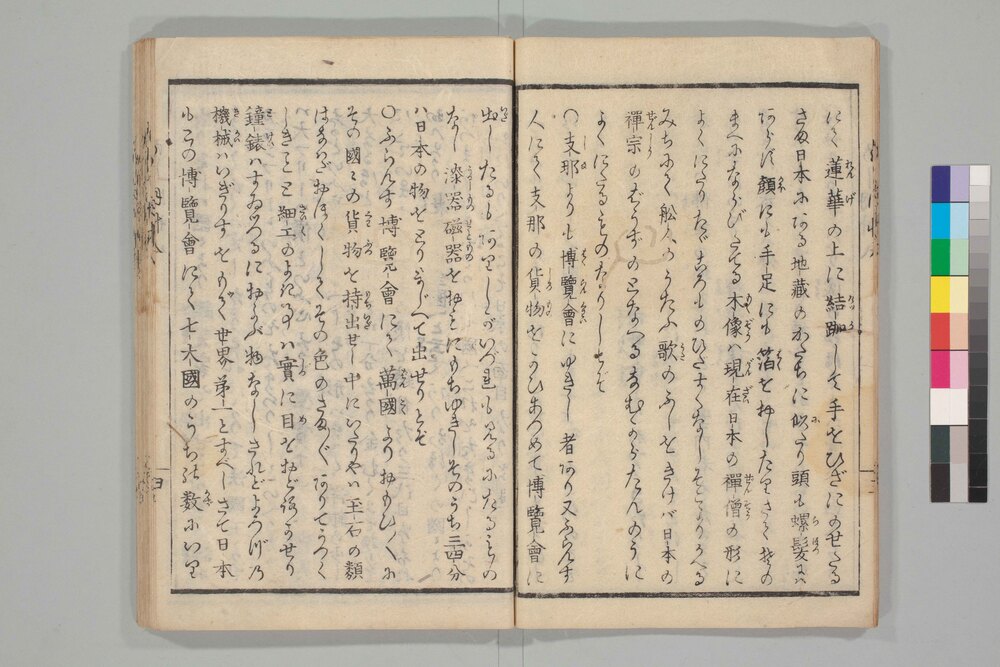 にて蓮華の上に結跏して手をひざにのせたる
さま日本にある地蔵のかたちに似たり頭も螺髪にハ
あらず顔にも手足にも箔をおしたりさて其の
まへにならびたてる木像ハ現在日本の禅僧の形に
よくにたりたゞころものひだすくなしそこよりかへる
みちにて舩人のうたふ歌のふしをきけバ日本の
禅宗のばうずのとなへるなむからたんのうに
よくにたるものなりしとぞ
〇支那よりも博覧會にゆきし者あり又ふらんす
人にて支那の貨物をかひあつめて博覧會に
出したるもありしがいづれも見るにたるもの
なし漆器磁器をおもにもちゆきしそのうち三四分
ハ日本の物をとりまじへて出せりとぞ
〇ふらんす博覧會にて萬國よりおもひ〱に
その國々の貨物を持出せし中にいたりや ハ玉石の類
はなはだおほくしてその色のさま〲ありてうつく
しきこと細工のよき事ハ實に目をおどろかせり
鐘錶ハすゐつるにおよぶ物なしされどよろづの
機械ハいぎりすをもて世界第一とすべしさて日本
もこの博覧會にて七大國のうちの数にいり